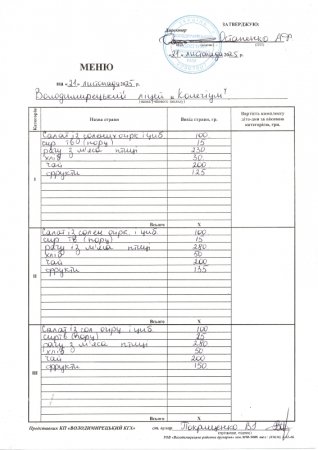 ЗАТВЕРДЖУЮ:
Директор Остапенко
«21» листопада 2025 р.
МЕНЮ
на «21» листопада 2025 р.
Володимирецький ліцей "Колегіум"
Категорія
Назва страви
Вихід страви, гр.
Вартість комплекту
д/то-дня за віковою
категорією, грн.
I
Салат із солених огірк. і циб 100
сир тв (пору) 15
рагу з м'яса птиці 230
хліб 30
чай 200
фрукти 125
Всього X
II
Салат із солен. огірк. і циб 100
сир тв (пору) 15
рагу із м'яса птиці 280
хліб 50
чай 200
фрукти 135
Всього X
III
Салат із сол. огірк. і циб 100
сир тв (пору) 25
рагу із м'яса птиці 280
хліб 50
чай 200
фрукти 150
Всього X
Представник КП «ВОЛОДИМИРЕЦЬКИЙ КГХ» ст. кухар